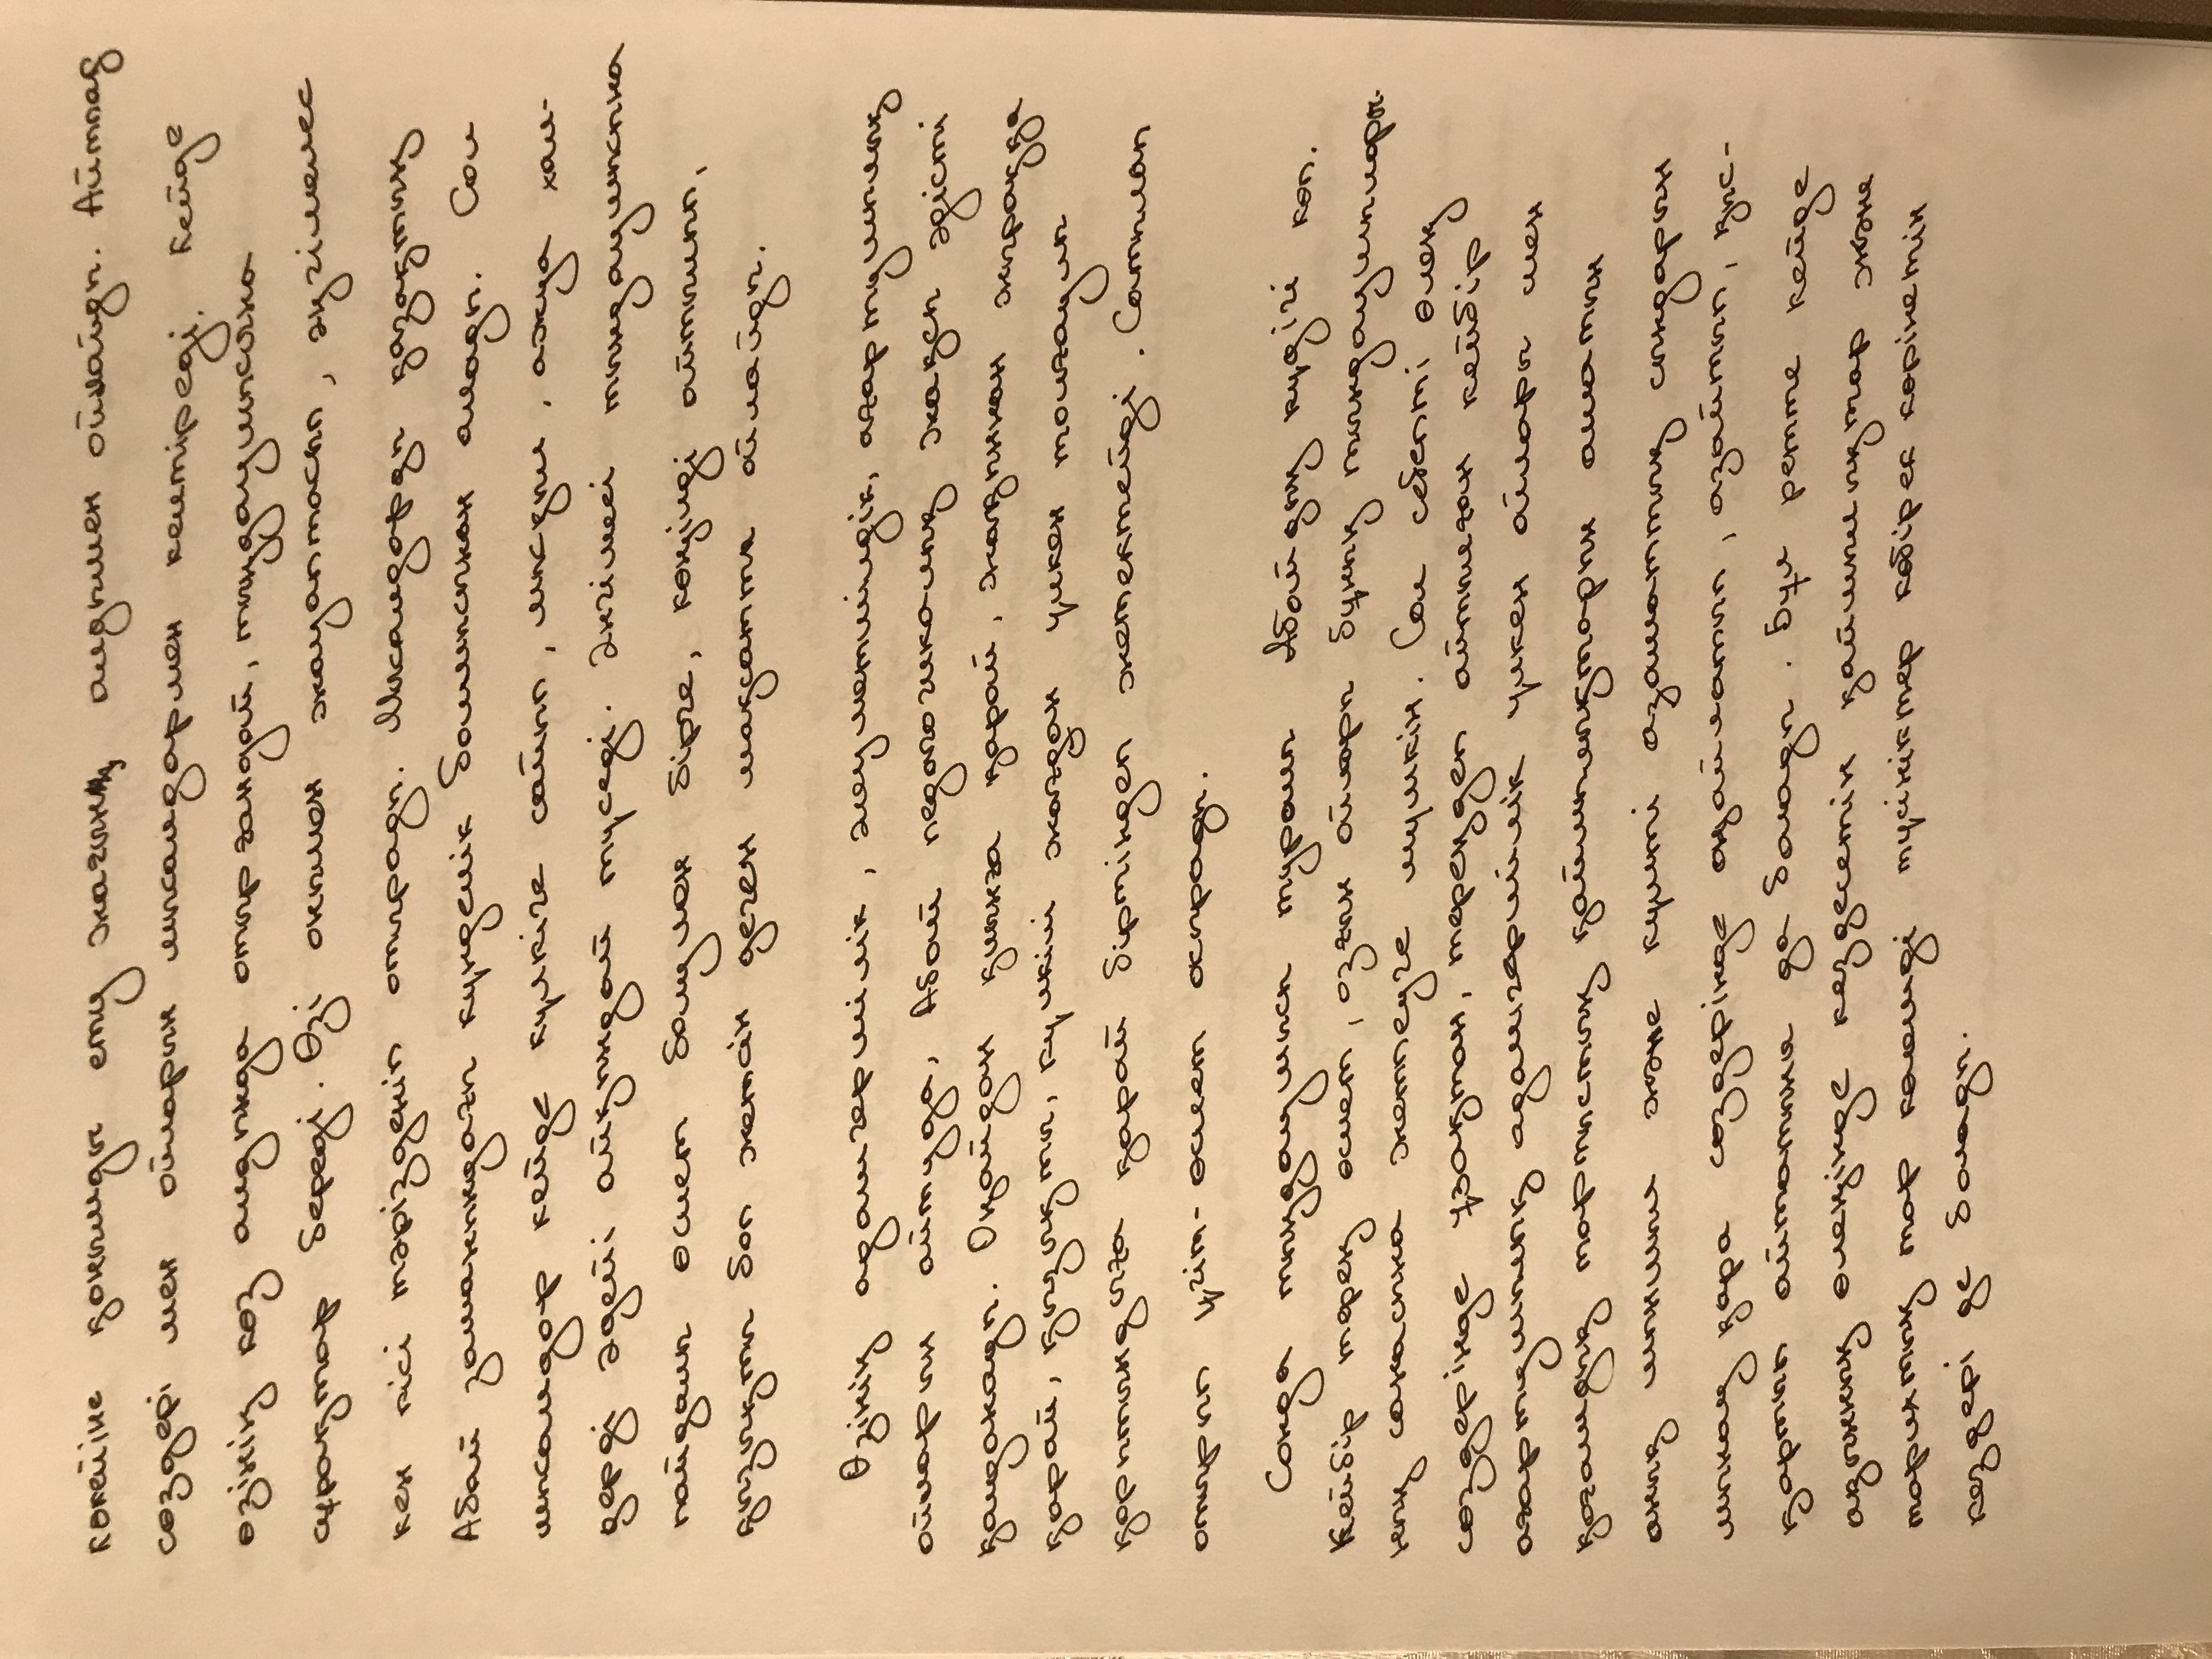 көкейіне қонымды ету жағын алдымен ойлайды. Айтпақ
сөздері мен ойларын мысалдармен келтіреді. Кейде
өзінің көз алдында отырғандай, тыңдаушысына
сұрақтар береді. Өзі онымен жауаптасып, әңгімелес
кен кісі тәрізденіп отырады. Мысалдарды қазақтың
Абай заманындағы күнделік болмысынан алады. Сол
мысалдар кейде күлкіге сайып, мысқыл, ажуа хал-
дерді әдейі айқындай түседі. Әнгімесі тындаушысына
пайдалы өсиет болумен бірге, көңілді айтылып,
қызықты боп жетсін деген мақсатты ойлайды.
Өзінің адамгершілік, әлеуметшілдік, ағартушылық
ойларын айтуда, Абай педагогикалық жақсы әдісті
қолданады. Оңайдан қиынға қарай, жақыннан жыраққа
қарай, қызықты, күлкілі жағдан үлкен толғаулы
қорытындыға қарай біртіндеп жетектейді. Сатылап
отырып үгіт-өсиет асырады.
Сонда тыңдаушысы туралы Абайдың күдігі көп.
Кейбір терең өсиет, озғын ойлары бұның тындаушылары-
ның санасына жетпеуге мүмкін. Сол себепті өлең
сөздерінде ұзақтан, тереңдеп айтылған кейбір
ағартушылық адамгершілік үлкен ойлары мен
қоғамдық тартыстың қайшылықтарын ашатын
анық шыншыл және күшті азаматтық сындарын
мынау қара сөздерінде оңайлатып, азайтып, қыс-
қартып айтатыны да болады. Бұл ретте кейде
ақынның өлеңінде кездесетін қайшылықтар және
тарихтық тар көлемді түсініктер көбірек көрінетін
кездері де болады.